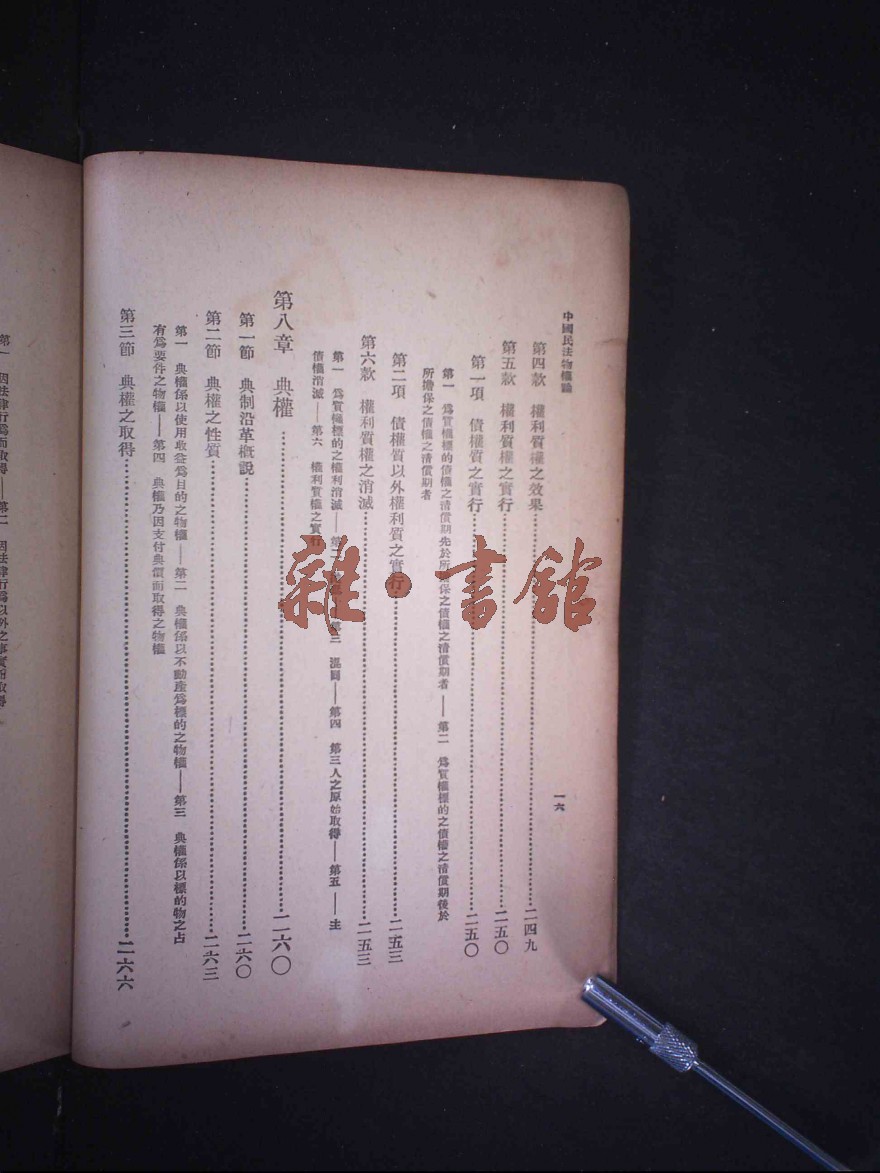 中國民法物權論
一六
第四款　權利質權之效果……二四九
第五款　權利質權之實行……二五〇
第一項　債權質之實行……二五〇
第一　爲質權標的債權之清償期先於所擔保之債權之清償期者——第二　爲質權標的之債權之清償期後於
所擔保之債權之清償期者
第二項　債權質以外權利質之實行……二五三
第六款　權利質權之消滅……二五三
第一　爲質權標的之權利消滅——第二　第三　混同——第四　第三人之原始取得——第五——主
債權消滅——第六　權利質權之實行
第八章　典權……二六〇
第一節　典制沿革概說……二六〇
第二節　典權之性質……二六三
第一　典權係以使用收益爲目的之物權——第二　典權係以不動產爲標的之物權——第三　典權係以標的物之占
有爲要件之物權——第四　典權乃因支付典價而取得之物權
第三節　典權之取得……二六六
第一　因法律行爲而取得——第二　因法律行爲以外之事實而取得
雜·書館